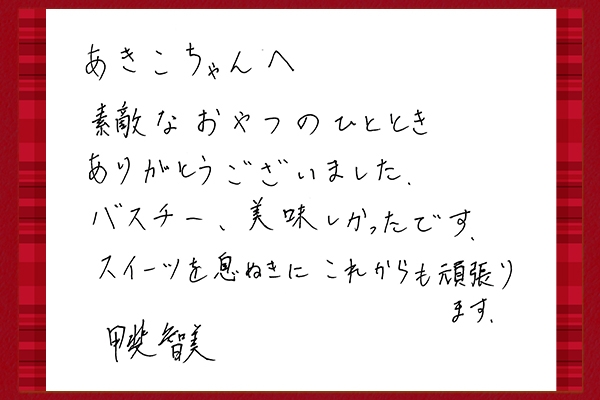 あきこちゃんへ
素敵なおやつのひととき
ありがとうございました.
バスチー、美味しかったです.
スイーツを息ぬきに これからも頑張り
ます.
甲斐智美